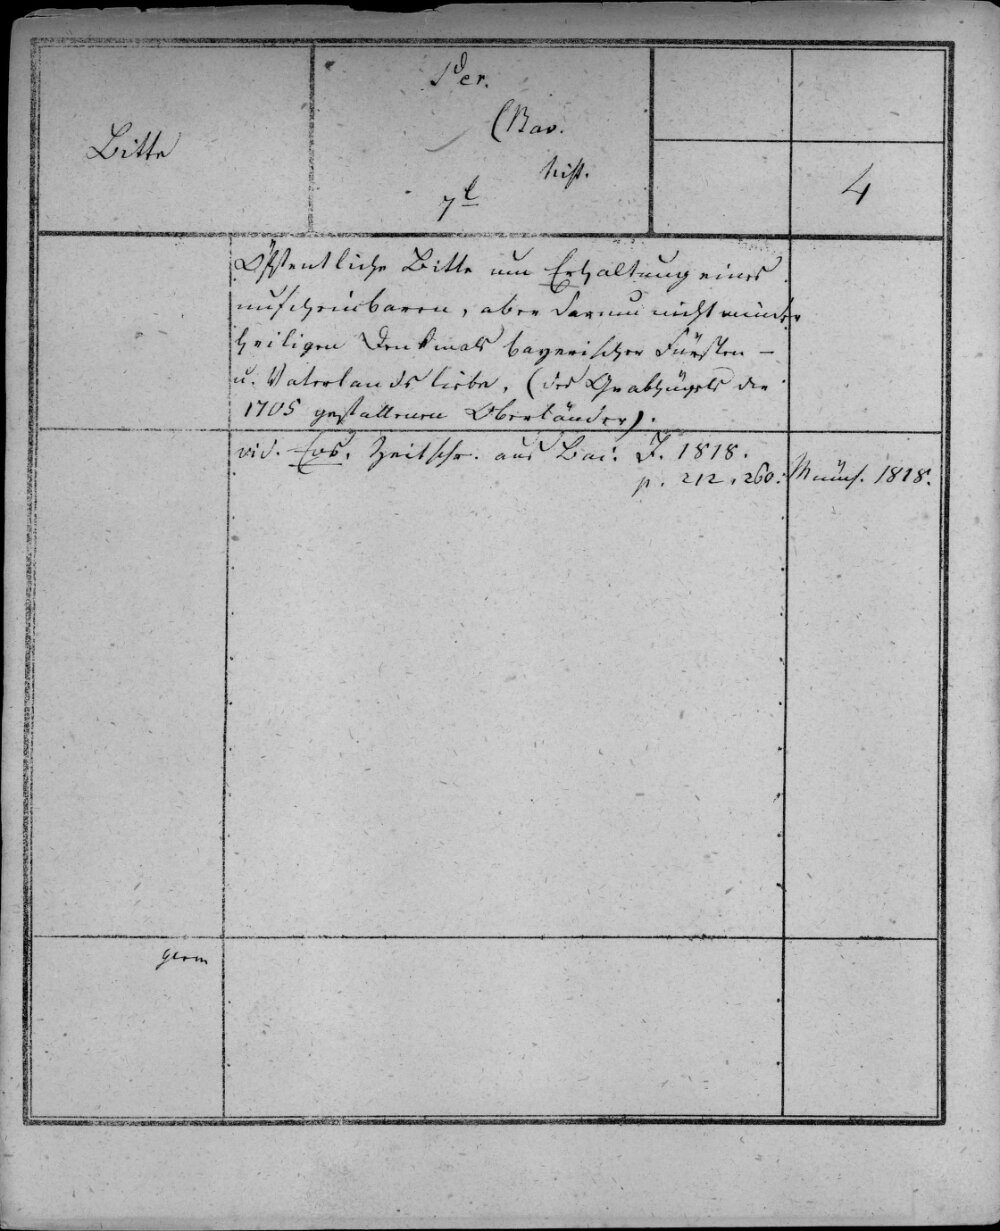 Bitte
Per.
(Bav.
hist.
7 l
4
Öffentliche Bitte um Erhaltung eines
unscheinbaren, aber darum nicht minder
heiligen Denkmals bayerischer Fürsten-
u. Vaterlandsliebe, (des Grabhügels der
1705 gefallenen Oberländer).
vid. Eos. Zeitschr. aus Bai. J. 1818.
p. 212, 260. Münch. 1818.
germ